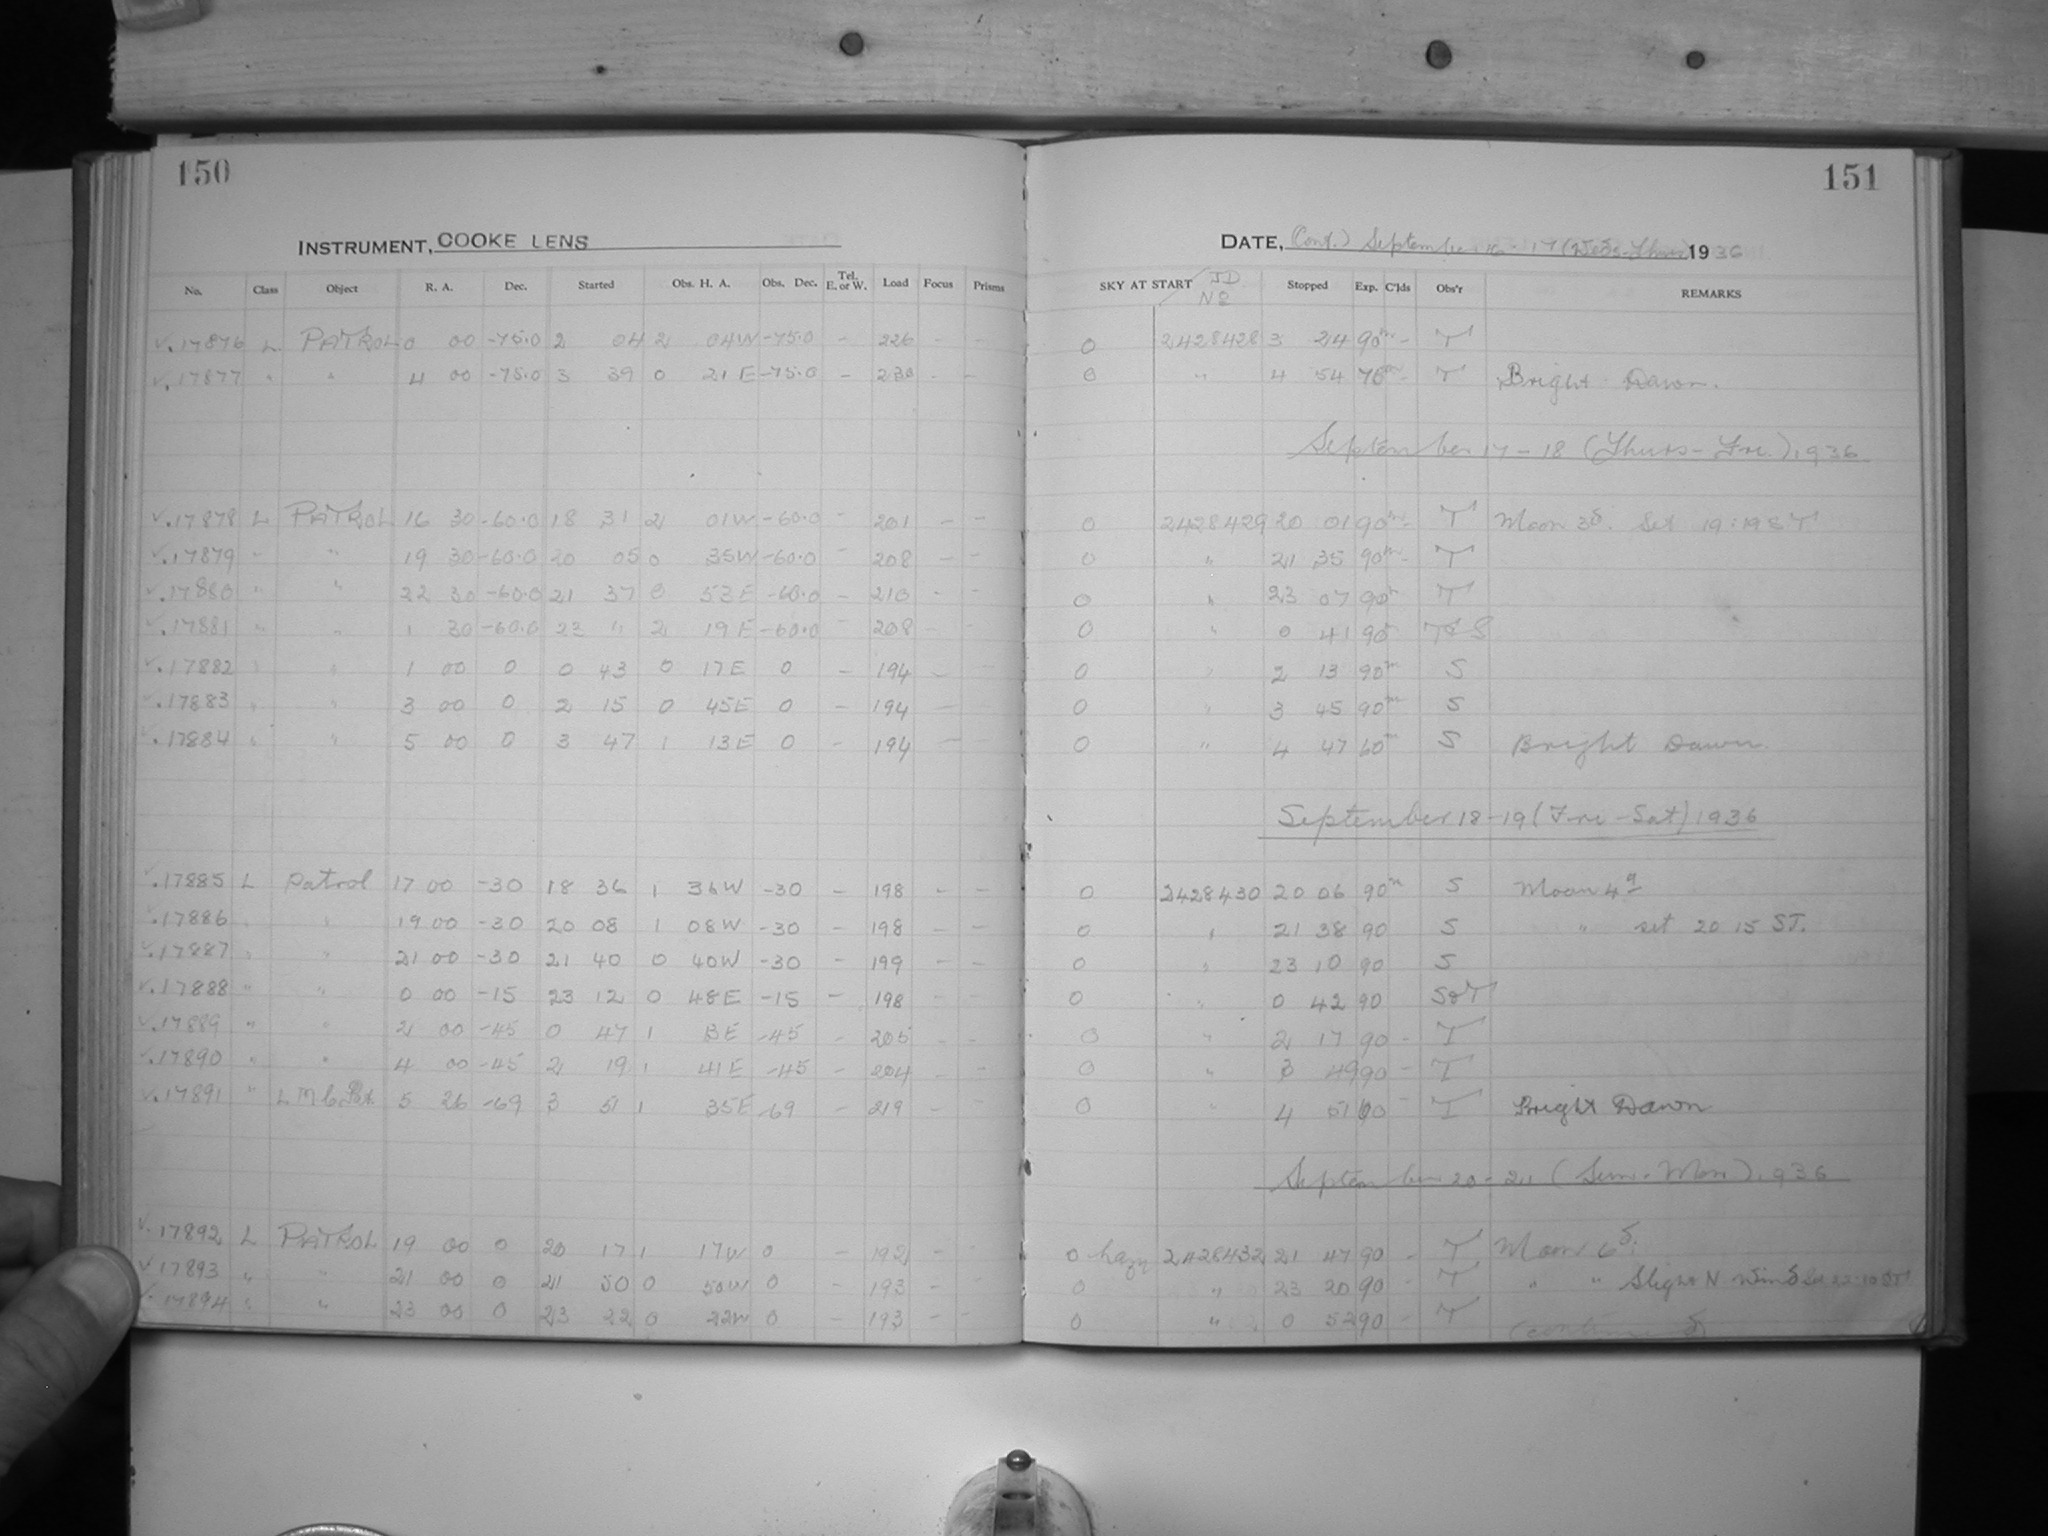 150
INSTRUMENT, COOKE LENS
No. Class Object R. A. Dec. Started Obs. H. A. Obs. Dec. Tel. E. or W. Load Focus Prisms
17876 L PATROL 0 00 -75.0 2 04 2 04W -75.0 - 226
17877 " " 4 00 -75.0 3 39 0 21 E -75.0 - 230 - -
17878 L PATROL 16 30 -60.0 18 31 2 01W -60.0 - 201 - -
17879 " " 19 30 -60.0 20 05 0 35W -60.0 - 208 - -
17880 " " 22 30 -60.0 21 37 0 53E -60.0 - 210 - -
17881 " " 1 30 -60.0 23 11 2 19 E -60.0 - 208 - -
17882 " " 1 00 0 0 43 0 17E 0 - 194 -
17883 " " 3 00 0 2 15 0 45E 0 - 194 -
17884 " " 5 00 0 3 47 1 13E 0 - 194 -
17885 L Patrol 17 00 -30 18 36 1 36W -30 - 198 - -
17886 " " 19 00 -30 20 08 1 08W -30 - 198 - -
17887 " " 21 00 -30 21 40 0 40W -30 - 199 - -
17888 " " 0 00 -15 23 12 0 48E -15 - 198 - -
17889 " " 2 00 -45 0 47 1 13E -45 - 205 - -
17890 " " 4 00 -45 2 19 1 41E -45 - 204 - -
17891 " 5 26 -69 3 51 1 35E -69 - 219 - -
17892 L PATROL 19 00 0 20 17 1 17W 0 - 192 - -
17893 " " 21 00 0 21 50 0 50W 0 - 193 - -
17894 " " 23 00 0 23 22 0 22W 0 - 193 - -
151
DATE, (Cont.) September 16-17 (Weds-Thurs) 1936
SKY AT START JD No Stopped Exp. C'lds Obs'r REMARKS
0 2428428 3 24 90m - T
0 " 4 54 - T Bright Dawn.
September 17-18 (Thurs-Fri.) 1936
0 2428429 20 01 90m - T Moon 3d. Set 19:19 ST
0 " 21 35 90m - T
0 " 23 07 90m T
0 " 0 41 90 T&S
0 " 2 13 90m S
0 " 3 45 90m S
0 " 4 47 60m S Bright Dawn.
September 18-19 (Fri-Sat) 1936
0 2428430 20 06 90m S Moon 4d
0 " 21 38 90 S " set 20 15 ST.
0 " 23 10 90 S
0 " 0 42 90 S&T
0 " 2 17 90 - T
0 " 3 49 90 - T
0 " 4 51 60 - T Bright Dawn
September 20-21 (Sun-Mon) 1936
0 hazy 2428432 21 47 90 - T Moon 6d.
0 " 23 20 90 - T " " Slight N. Wind Set 22:10 ST
0 " 0 52 90 - T
(continued)